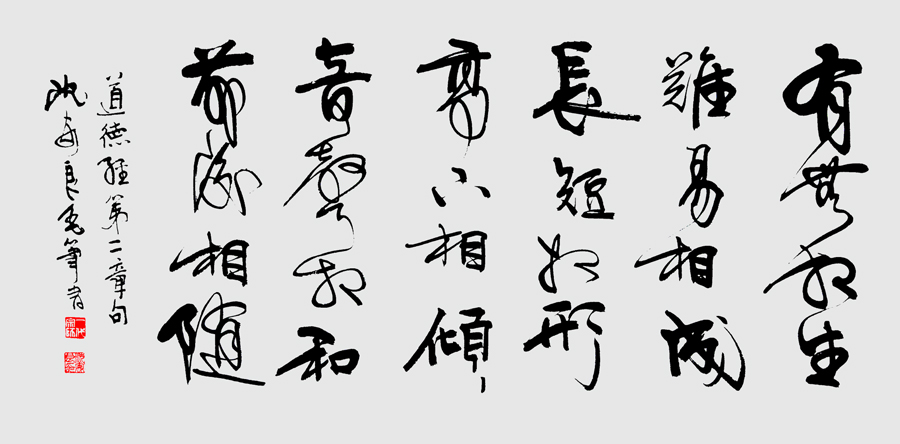 有無相生
難易相成
長短相形
高下相傾
音聲相和
前後相随
道德經第二章句